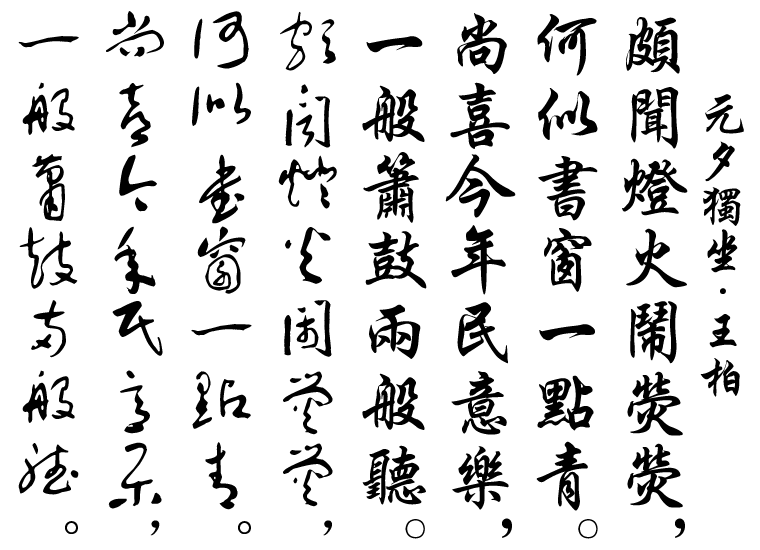 元夕獨坐·王柏
頗聞燈火鬧熒熒，
何似書窗一點青。
尚喜今年民意樂，
一般簫鼓兩般聽。
頗聞燈火鬧熒熒，
何似書窗一點青。
尚喜今年民意樂，
一般簫鼓兩般聽。